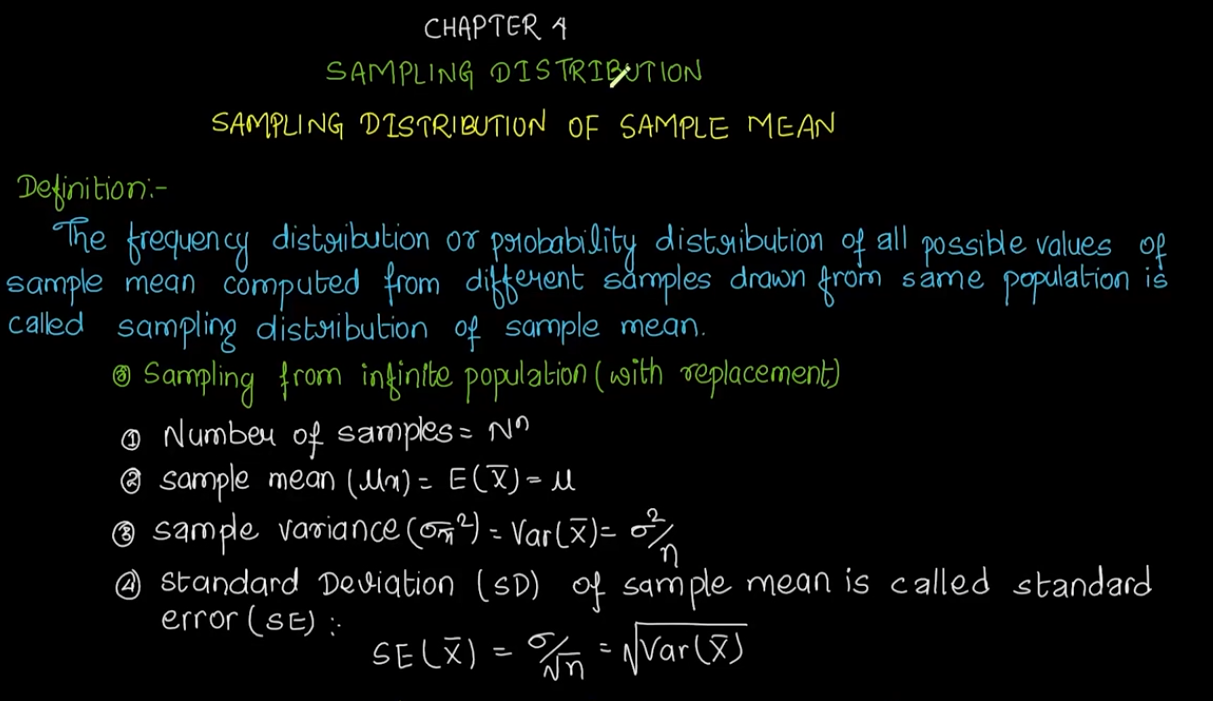 CHAPTER 4
SAMPLING DISTRIBUTION
SAMPLING DISTRIBUTION OF SAMPLE MEAN
Definition:-
The frequency distribution or probability distribution of all possible values of
sample mean computed from different samples drawn from same population is
called sampling distribution of sample mean.
⊛ Sampling from infinite population (with replacement)
① Number of samples = Nⁿ
② sample mean (μx) = E(X̄) = μ
③ sample variance (σx̄²) = Var(X̄) = σ²/n
④ Standard Deviation (SD) of sample mean is called standard
error (SE) :-
SE(X̄) = σ/√n = √Var(X̄)